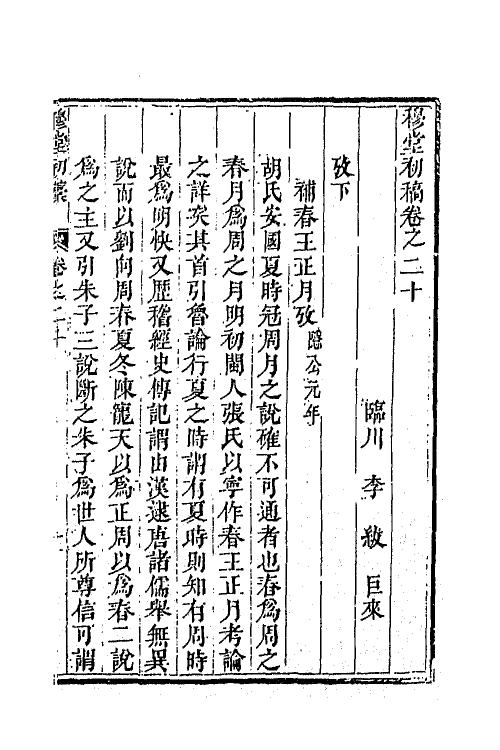 穆堂初稿卷之二十
臨川 李紱 巨來
攷下
補春王正月攷 隱公元年
胡氏安國夏時冠周月之說確不可通者也春爲周之
春月爲周之月明初閩人張氏以寧作春王正月考論
之詳矣其首引魯論行夏之時謂有夏時則知有周時
最爲明快又歷稽經史傳記謂由漢逮唐諸儒舉無異
說而以劉向周春夏冬陳寵天以爲正周以爲春二說
爲之主又引朱子三說斷之朱子爲世人所尊信可謂
穆堂初稾 卷之二十